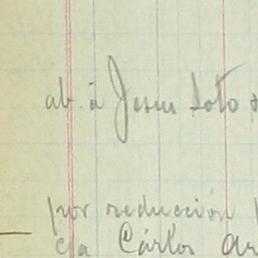 ab. à Jesus Soto
por reducción
cta Cárlos Ar